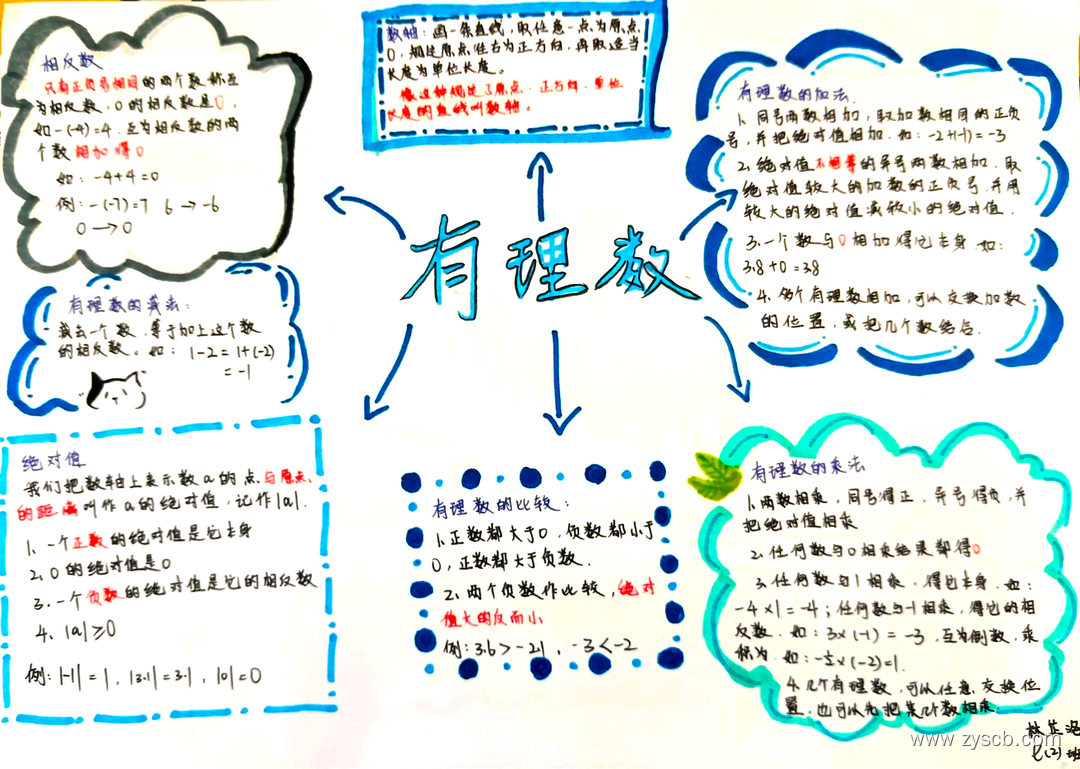 相反数
只有正负号相同的两个数称互
为相反数，0的相反数是0，
如-(-4)=4. 互为相反数的两
个数相加得0
如：-4+4=0
例：-(-7)=7 6→-6
0→0
数轴：画一条直线，取任意一点为原点
0，规定原点往右为正方向，再取适当
长度为单位长度。
像这种规定了原点、正方向、单位
长度的直线叫数轴。
有理数的加法.
1. 同号两数相加，取加数相同的正负
号，并把绝对值相加. 如：-2+(-1)=-3
2. 绝对值不相等的异号两数相加. 取
绝对值较大的加数的正负号. 并用
较大的绝对值减较小的绝对值.
3. 一个数与0相加得它本身 如：
3.8+0=3.8
4. 多个有理数相加，可以交换加数
的位置，或把几个数结合.
有理数
有理数的减法：
减去一个数. 等于加上这个数
的相反数。如：1-2=1+(-2)
=-1
绝对值
我们把数轴上表示数a的点与原点
的距离叫作a的绝对值，记作|a|.
1、一个正数的绝对值是它本身
2、0的绝对值是0
3. 一个负数的绝对值是它的相反数
4、|a|≥0
例：|-1|=1，|3.1|=3.1，|0|=0
有理数的比较：
1. 正数都大于0，负数都小于
0，正数都大于负数.
2. 两个负数作比较，绝对
值大的反而小
例：3.6>-2.1，-3<-2
有理数的乘法
1. 两数相乘，同号得正. 异号得负，并
把绝对值相乘
2. 任何数与0相乘结果都得0
3. 任何数与1相乘，得它本身. 如：
-4×1=-4；任何数与-1相乘，得它的相
反数. 如：3×(-1)=-3. 互为倒数，乘
称为. 如：-½×(-2)=1.
4. 几个有理数，可以任意交换位
置，也可以先把某几个数相乘.
七(2)班
www.zyscb.com